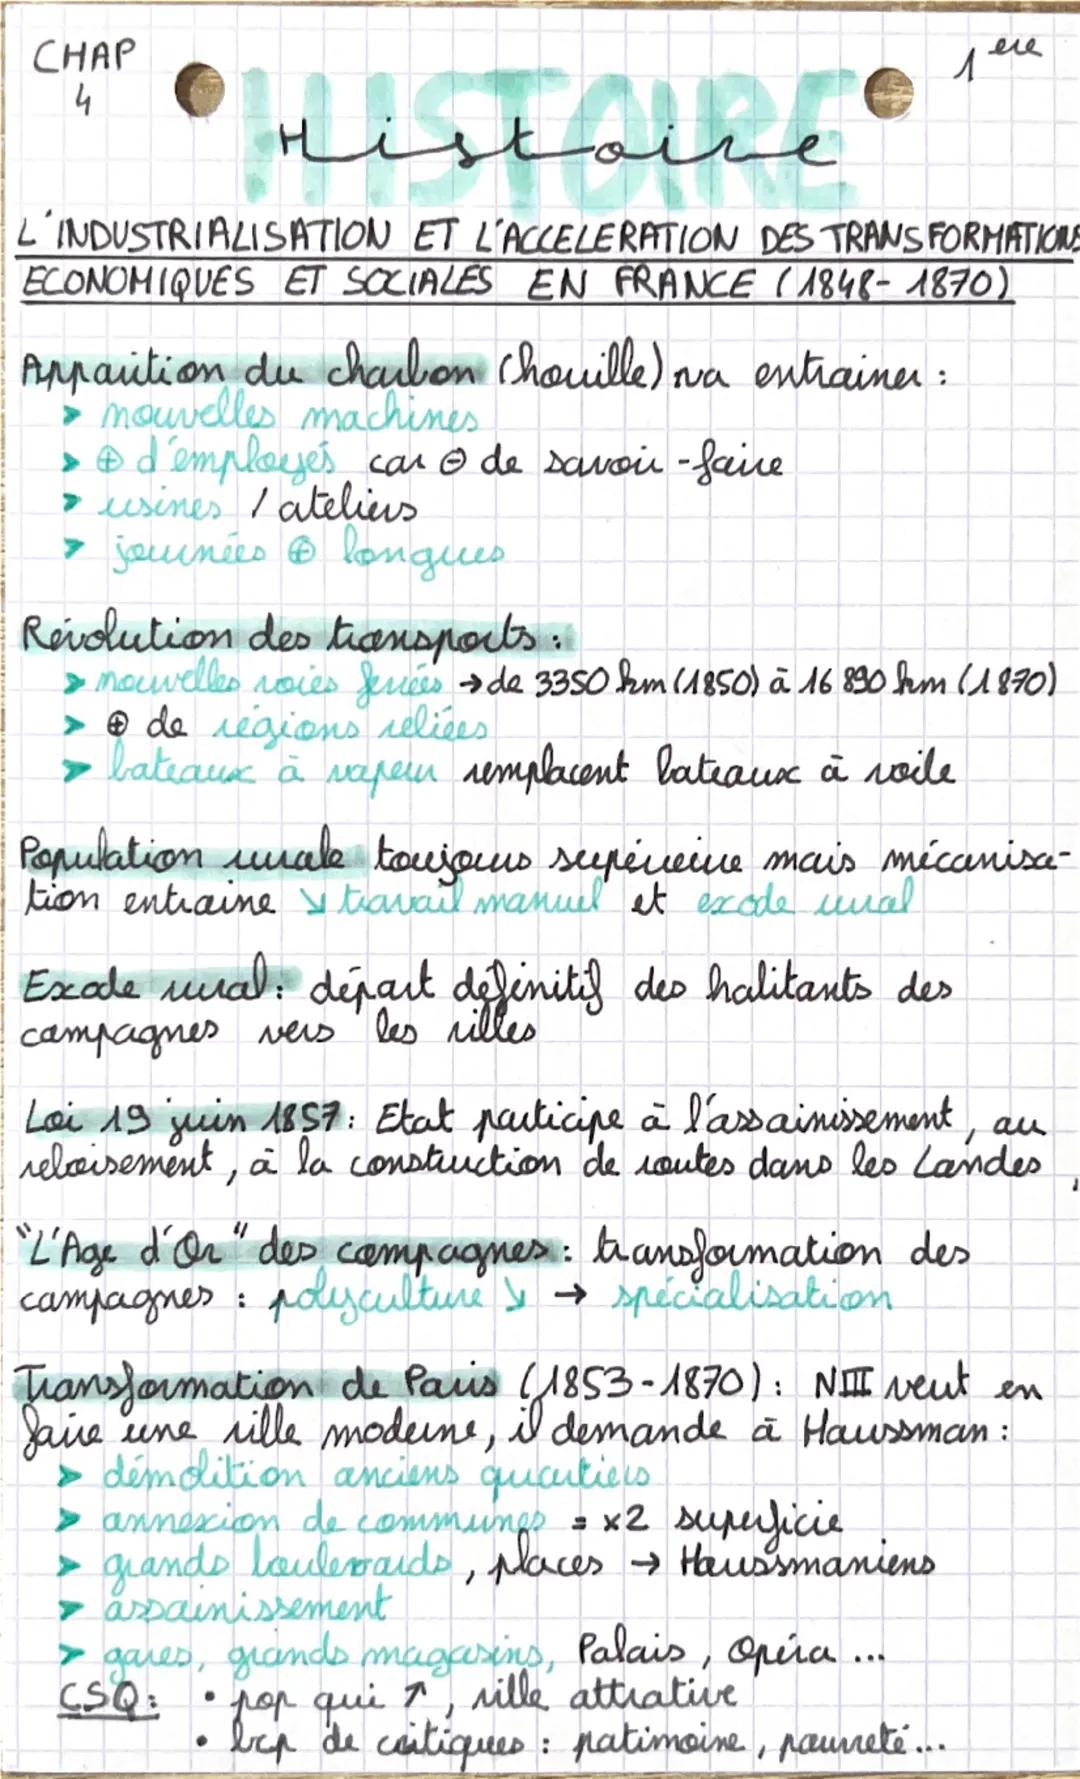 CHAP
4
1ère
HISTOIRE
Histoire
L'INDUSTRIALISATION ET L'ACCELERATION DES TRANSFORMATIONS
ECONOMIQUES ET SOCIALES EN FRANCE (1848-1870)
Apparition du charbon (houille) va entrainer :
> nouvelles machines
> ⊕ d'employés car ⊖ de savoir-faire
> usines / ateliers
> journées ⊕ longues
Révolution des transports :
> nouvelles voies ferrées → de 3350 km (1850) à 16 890 km (1870)
> ⊕ de régions reliées
> bateaux à vapeur remplacent bateaux à voile
Population rurale toujours supérieure mais mécanisa-
tion entraine ↘ travail manuel et exode rural
Exode rural : départ définitif des habitants des
campagnes vers les villes
Loi 19 juin 1857 : Etat participe à l'assainissement, au
reboisement, à la construction de routes dans les Landes
"L'Age d'Or" des campagnes : transformation des
campagnes : polyculture ↘ → spécialisation
Transformation de Paris (1853-1870) : NIII veut en
faire une ville moderne, il demande à Haussman :
> démolition anciens quartiers
> annexion de communes = x2 superficie
> grands boulevards, places → Haussmaniens
> assainissement
> gares, grands magasins, Palais, Opéra ...
CSQ : • pop qui ↗, ville attrative
• bcp de critiques : patimoine, pauvreté ...